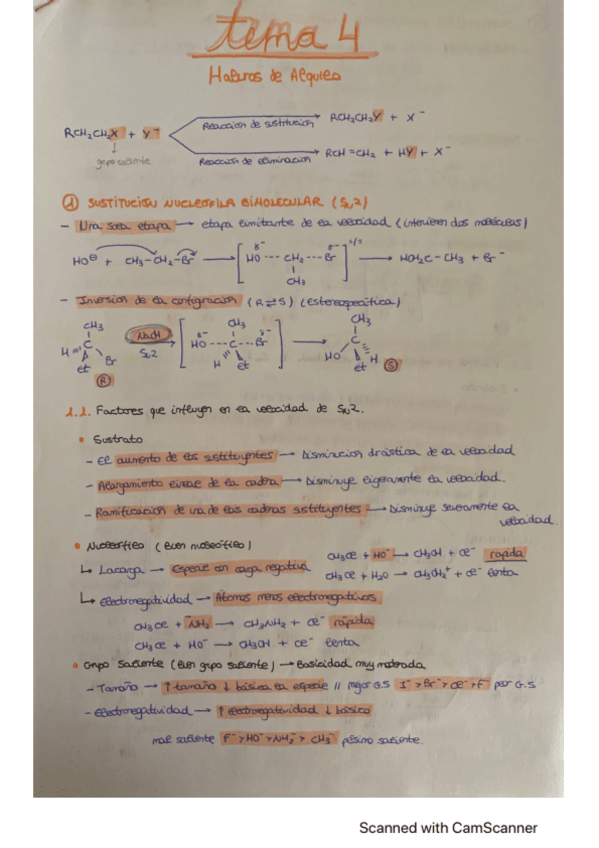 tema 4
Haluros de Alquilo
RCH₂CH₂X + Y⁻
Reacción de sustitución RCH₂CH₂Y + X⁻
grupo saliente
Reacción de eliminación RCH=CH₂ + HY + X⁻
① SUSTITUCIÓN NUCLEOFILA BIMOLECULAR (SN2)
- Una sola etapa → etapa limitante de la velocidad (intervienen dos moléculas)
HO⊖ + CH₃-CH₂-Br → [HO --- CH₂ --- Br] → HOH₂C-CH₃ + Br⁻
δ⁻ δ⁻
CH₃
- Inversión de la configuración (R⇌S) (Estereoespecífica)
CH₃ NaOH CH₃ CH₃
H C Br SN2 [HO --- C --- Br] → HO C H
δ⁻ δ⁻
et H et et
R S
1.1. Factores que influyen en la velocidad de SN2.
• Sustrato
- El aumento de los sustituyentes → Disminución drástica de la velocidad
- Alargamiento lineal de la cadena → Disminuye ligeramente la velocidad.
- Ramificación de una de las cadenas sustituyentes → Disminuye severamente la
velocidad.
• Nucleófilo (Buen nucleófilo)
CH₃Cl + HO⁻ → CH₃OH + Cl⁻ rápida
↳ La carga → Especie con carga negativa
CH₃Cl + H₂O → CH₃OH₂⁺ + Cl⁻ lenta
↳ Electronegatividad → Átomos menos electronegativos
CH₃Cl + ⁻NH₂ → CH₃NH₂ + Cl⁻ rápida
CH₃Cl + HO⁻ → CH₃OH + Cl⁻ lenta
• Grupo Saliente (Buen grupo saliente) → Basicidad muy moderada
- Tamaño → ↑ tamaño ↓ básica la especie // mejor G.S I⁻ > Br⁻ > Cl⁻ > F⁻ peor G.S
- Electronegatividad → ↑ electronegatividad ↓ básico
mal saliente F⁻ > HO⁻ > NH₂⁻ > CH₃⁻ pésimo saliente.
Scanned with CamScanner